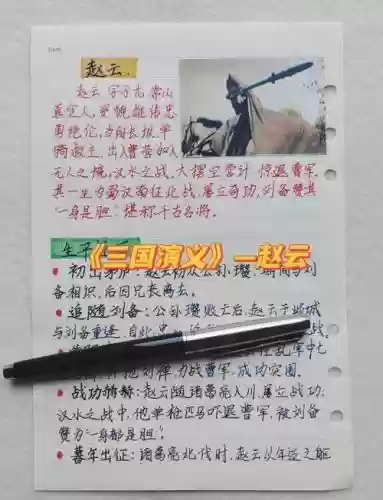 赵云
赵云 字子龙 常山
真定人,
勇绝伦,当阳长坂 单
骑救主,出入曹营如入
无人之境,汉水之战,大摆空营计 惊退曹军,
其一生为蜀汉南征北战,屡立奇功,刘备赞其
"一身是胆",堪称千古名将。
《三国演义》—赵云
生平
初出茅庐:赵云初从公孙瓒,期间与刘
备相识,后因兄长离去。
追随刘备:公孙瓒败亡后,赵云于邺城
与刘备重逢,自此,
力战曹军,成功突围。
战功赫赫:赵云随诸葛亮入川,屡立战功,
汉水之战中,他单枪匹马吓退曹军,被刘备
赞为"一身都是胆"。
暮年出征:诸葛亮北伐时,赵云以年迈之躯